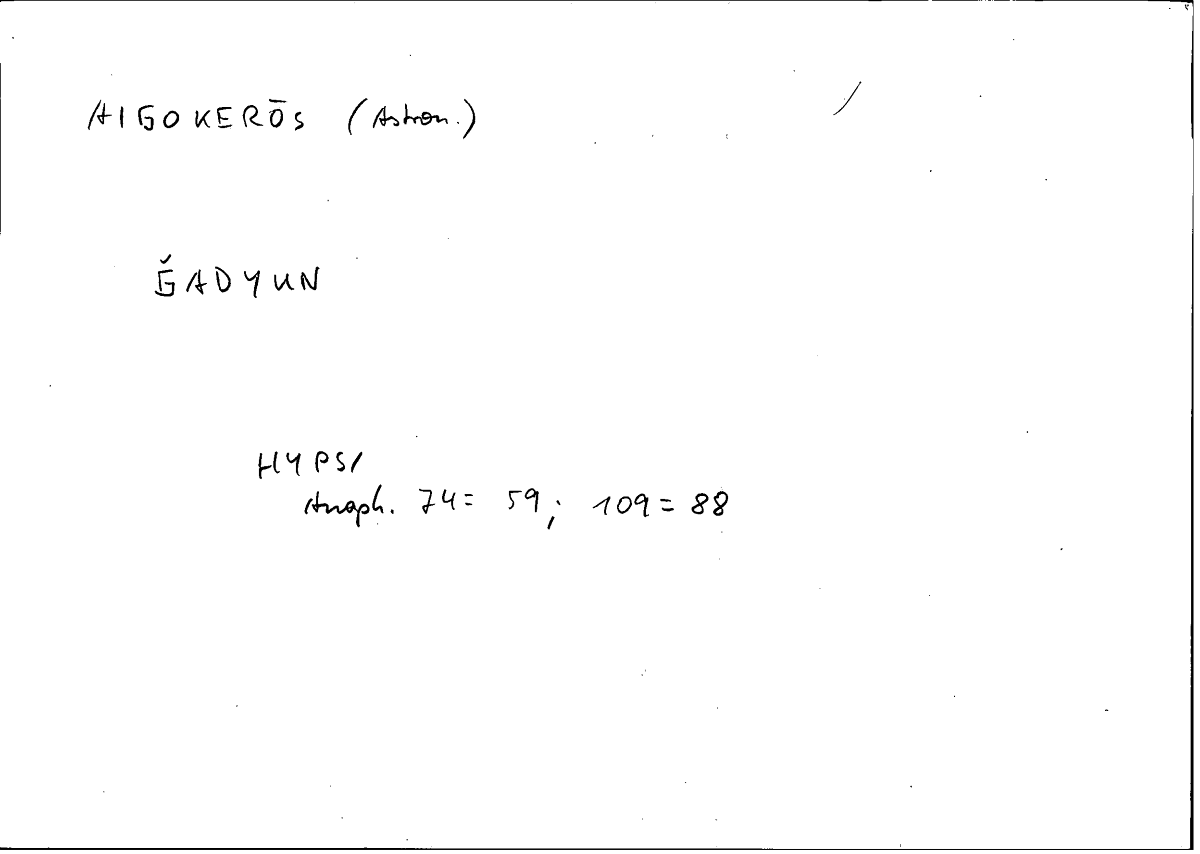 AIGOKERŌS (Astron.) /
ǦADYUN
HYPSI
Anaph. 74 = 59; 109 = 88